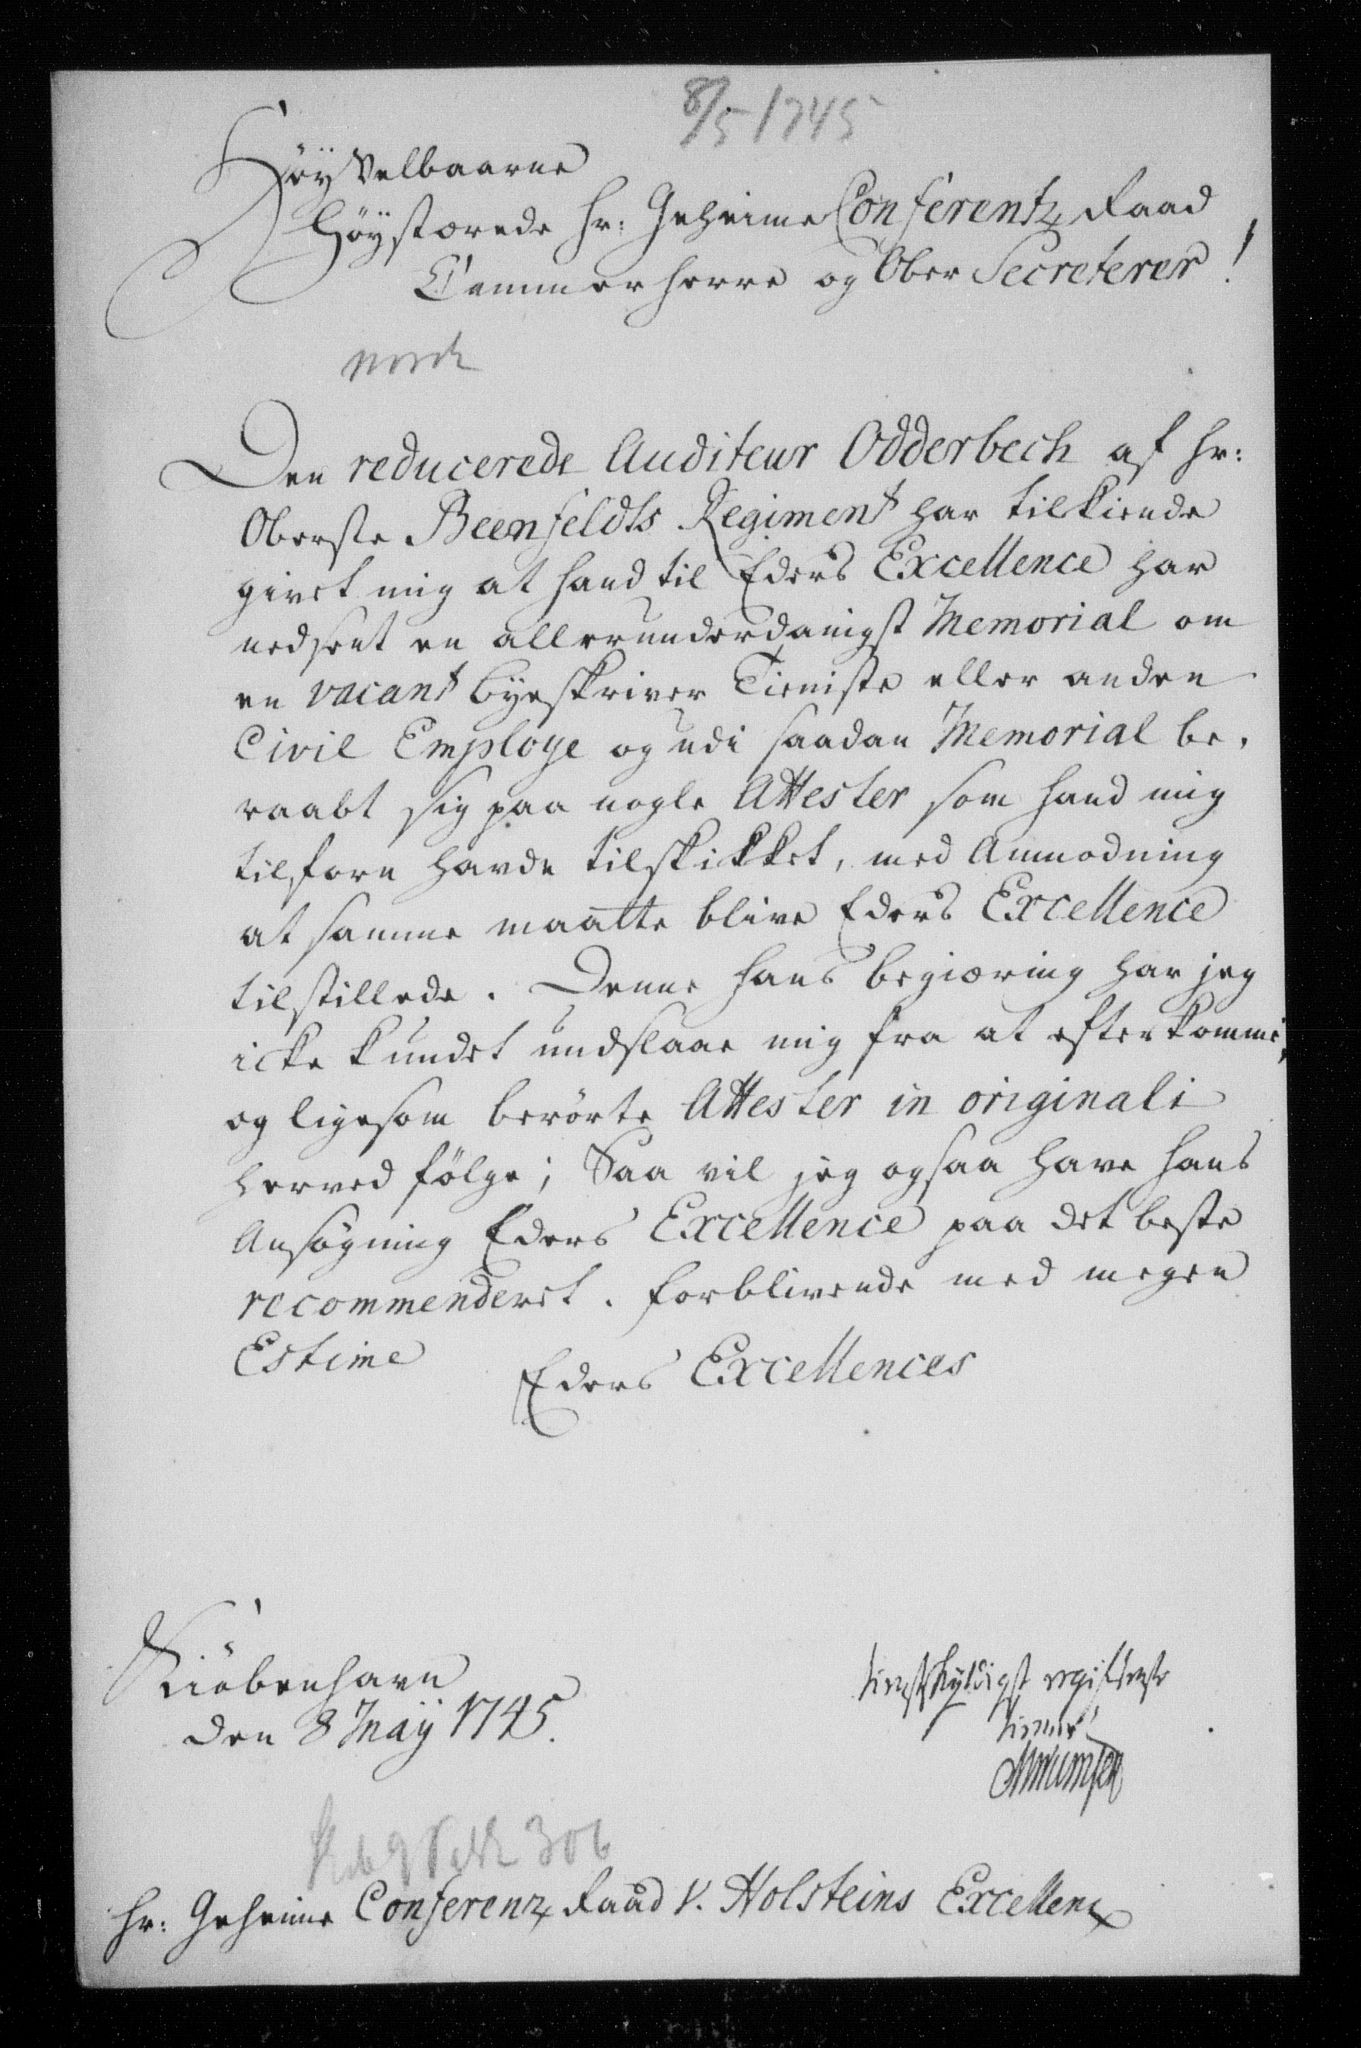 8/5 1745
Høy Velbaarne
Höystærede Hr: Geheime Conferentz Raad
Cammerherre og Ober Secreterer!
norsk
Den reducerede Auditeur Odderbech af Hr:
Oberste Beenfeldts Regiment har tilkiende
givet mig at hand til Eders Excellence har
nedsent en allerunderdanigst Memorial om
en vacant Byeskriver Tieniste eller anden
Civil Employe og udi saadan Memorial be,
raabt sig paa nogle Attester som hand mig
tilforn havde tilskikket, med Anmodning
at samme maatte blive Eders Excellence
tilstillede. Denne hans begiæring har jeg
icke kundet undslaae mig fra at efterkomme,
og ligesom berørte Attester in originali
herved fölge; Saa vil jeg ogsaa have hans
Ansögning Eders Excellence paa det beste
recommenderet. forblivende med megen
Estime
Eders Excellences
Kiöbenhavn
den 8 Maÿ 1745.
tienstskyldigst
tiener
306
Hr: Geheime Conferenz Raad v. Holsteins Excellenz